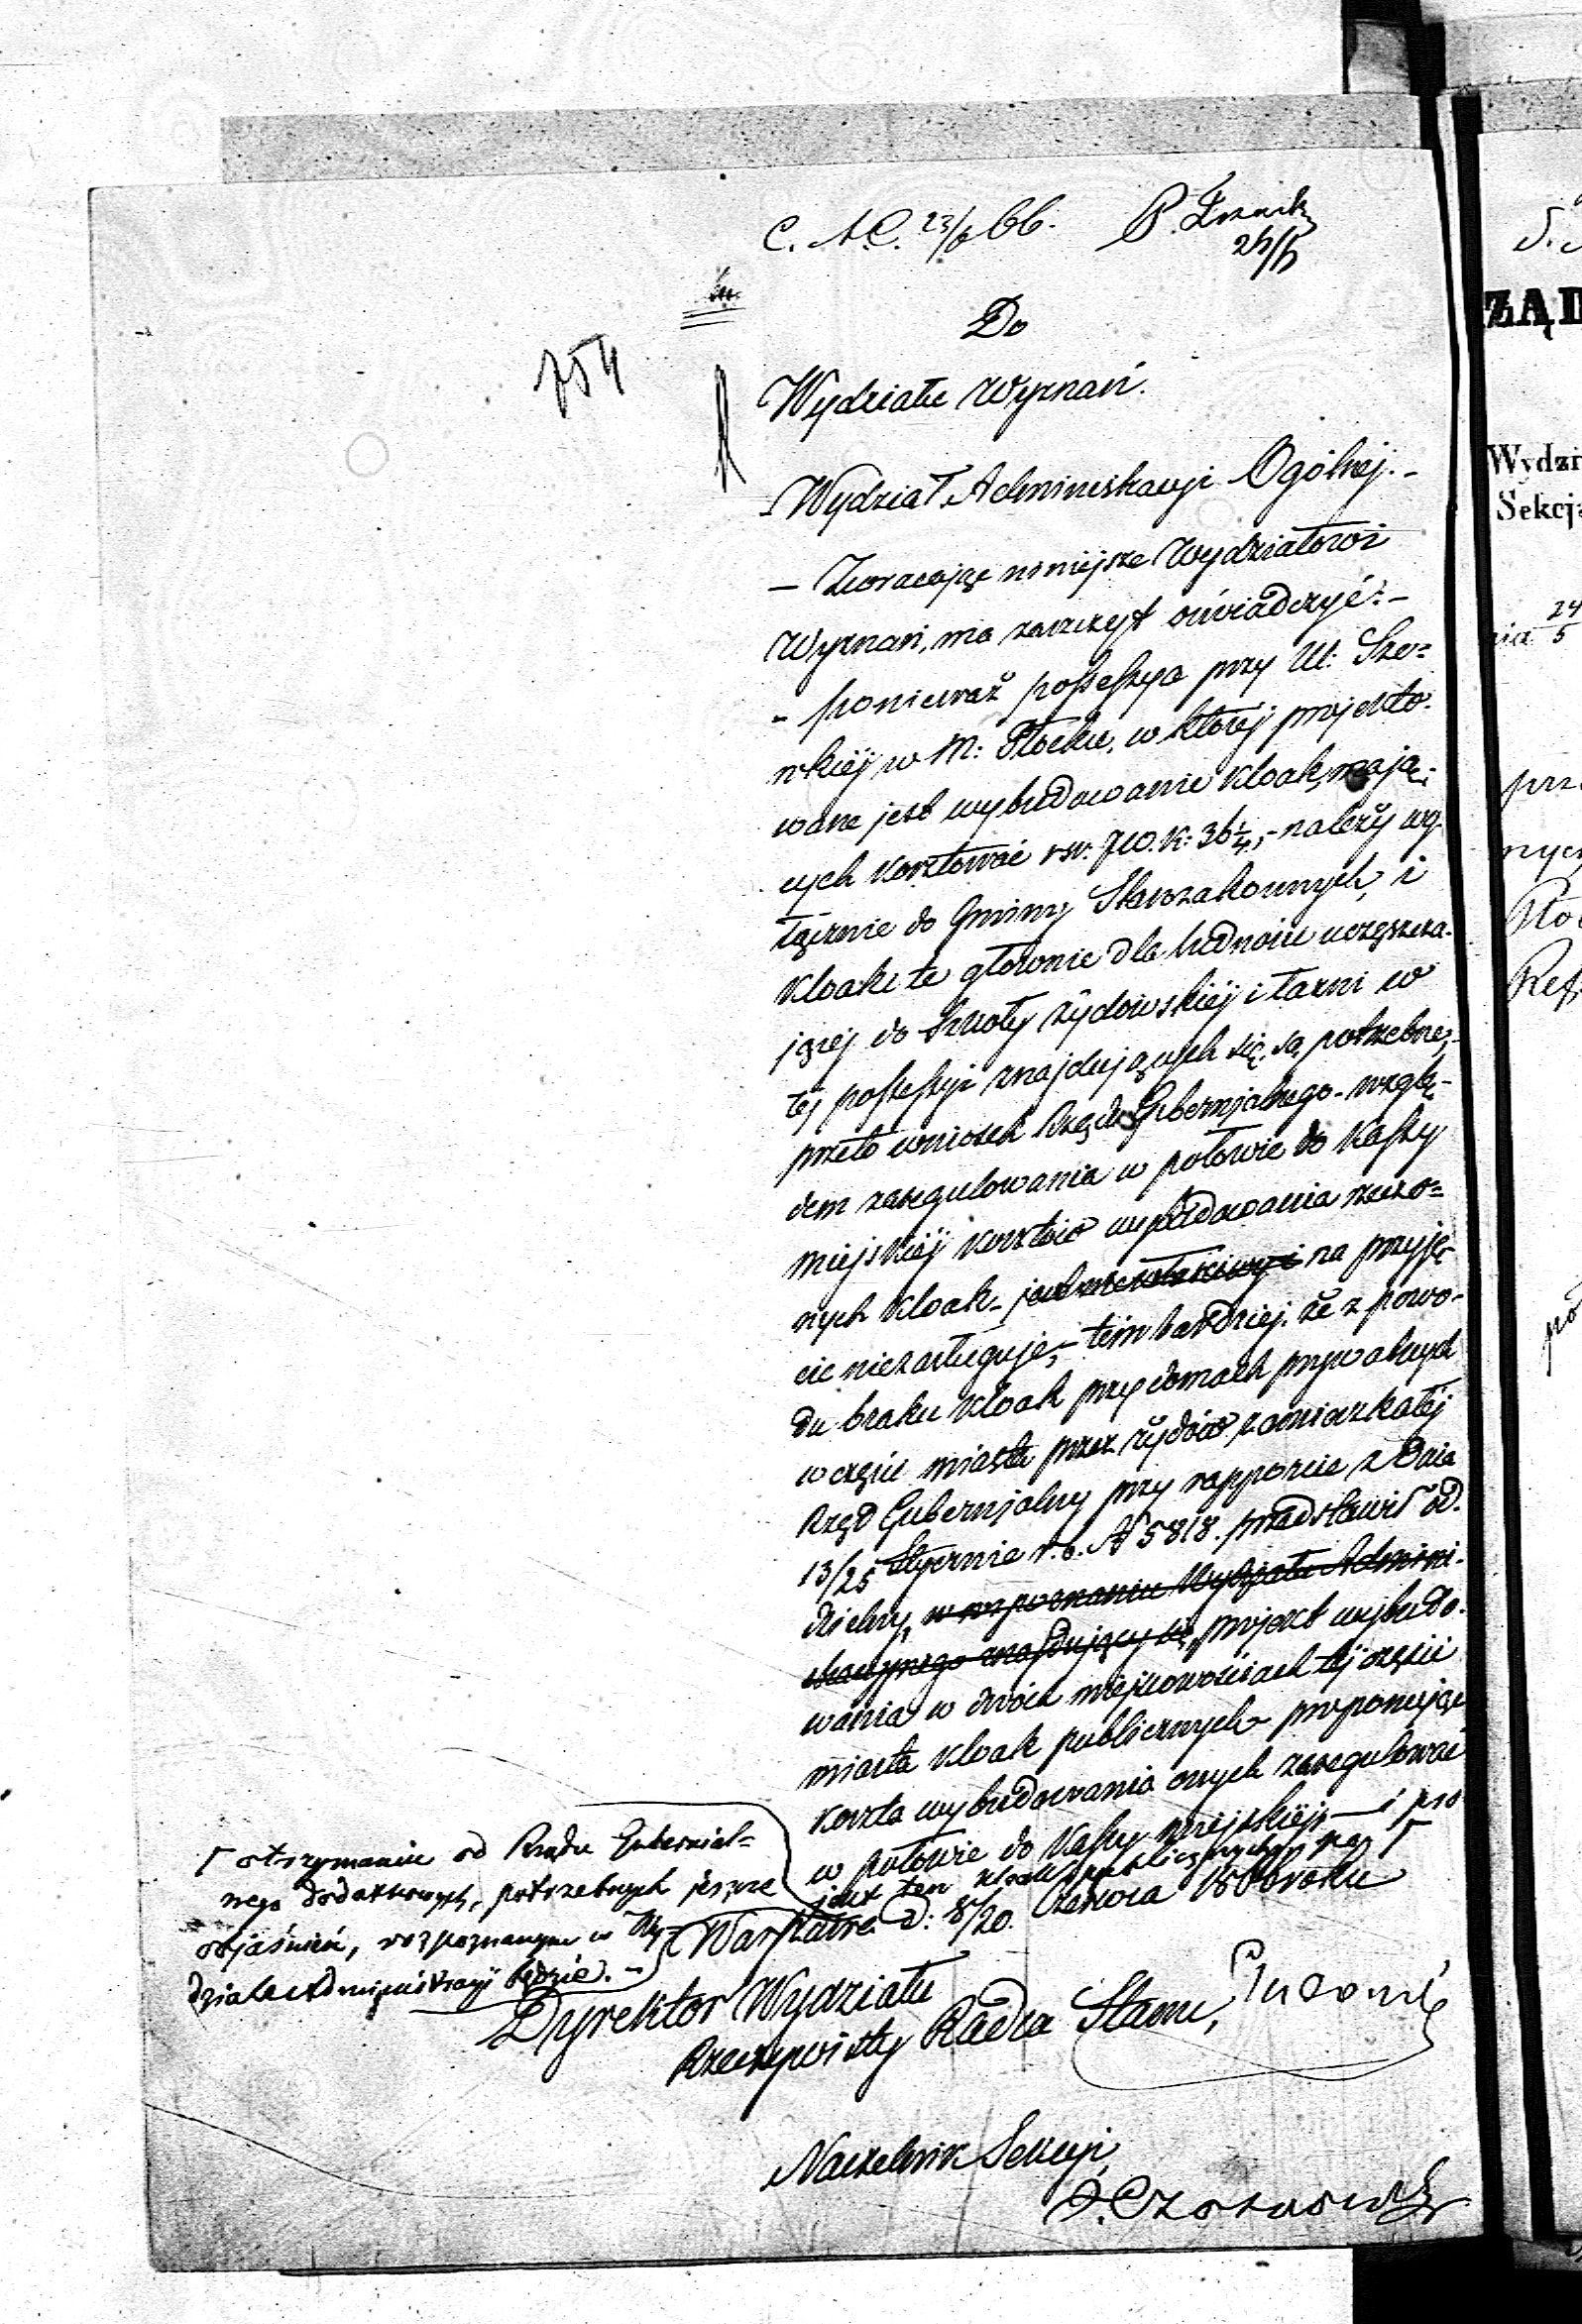 C. A C. 23/6 66. P.
754
Do
Wydziału Wyznań.
Wydział Administracyi Ogólnej.-
- Zwracając niniejsze Wydziałowi
Wyznań, ma zaszczyt oświadczyć:-
- ponieważ possessya przy Ul: Szero=
w M: Płocku, w której projekto-
wane jest wybudowanie kloak, mają-
cych kosztować rsr. 710. k: 36 1/4,- należy wy-
łącznie do Gminy Starozakonnych, i
kloaki te głównie dla ludności uczęszcza-
jącej do Szkoły żydowskiéj i łaźni w
téj possessyi znajdujących się, są potrzebne,-
przeto wniosek Rządu Gubernjalnego - wzglę-
dem zaregulowania w połowie do Kassy
miejskiéj kosztów wybudowania rzeczo=
nych kloak - jako niewłaściwy i na przyję-
cie niezasługuje,- tém bardziej, że z powo-
du braku kloak przy domach prywatnych
w części miasta przez żydów zamieszkałéj
Rząd Gubernjalny przy rapporcie z dnia
13/25 Stycznia r. b. N 5818. przedstawił od-
dzielny, w rozpoznaniu Wydziału Admini-
stracyjnego znajdujący się, projekt wybudo-
wania w dwóch miejscowościach téj części
miasta kloak publicznych - proponując
koszta wybudowania onych zaregulować
w połowie do Kassy miejskiéj, - i pro
jekt ten kloak publicznych po Γ
Γ otrzymaniu od Rządu Gubernial=
nego dodatkowych, potrzebnych jeszcze
objaśnień, rozpoznanym w Wy-
dziale Administracyi będzie. -
Warszawa d: 8/20. Czerwca 1866 roku
Dyrektor Wydziału
Rzeczywisty Radca Stanu,
Naczelnik Sekcyi,
ZĄD
Wydzi
Sekcja
24
5